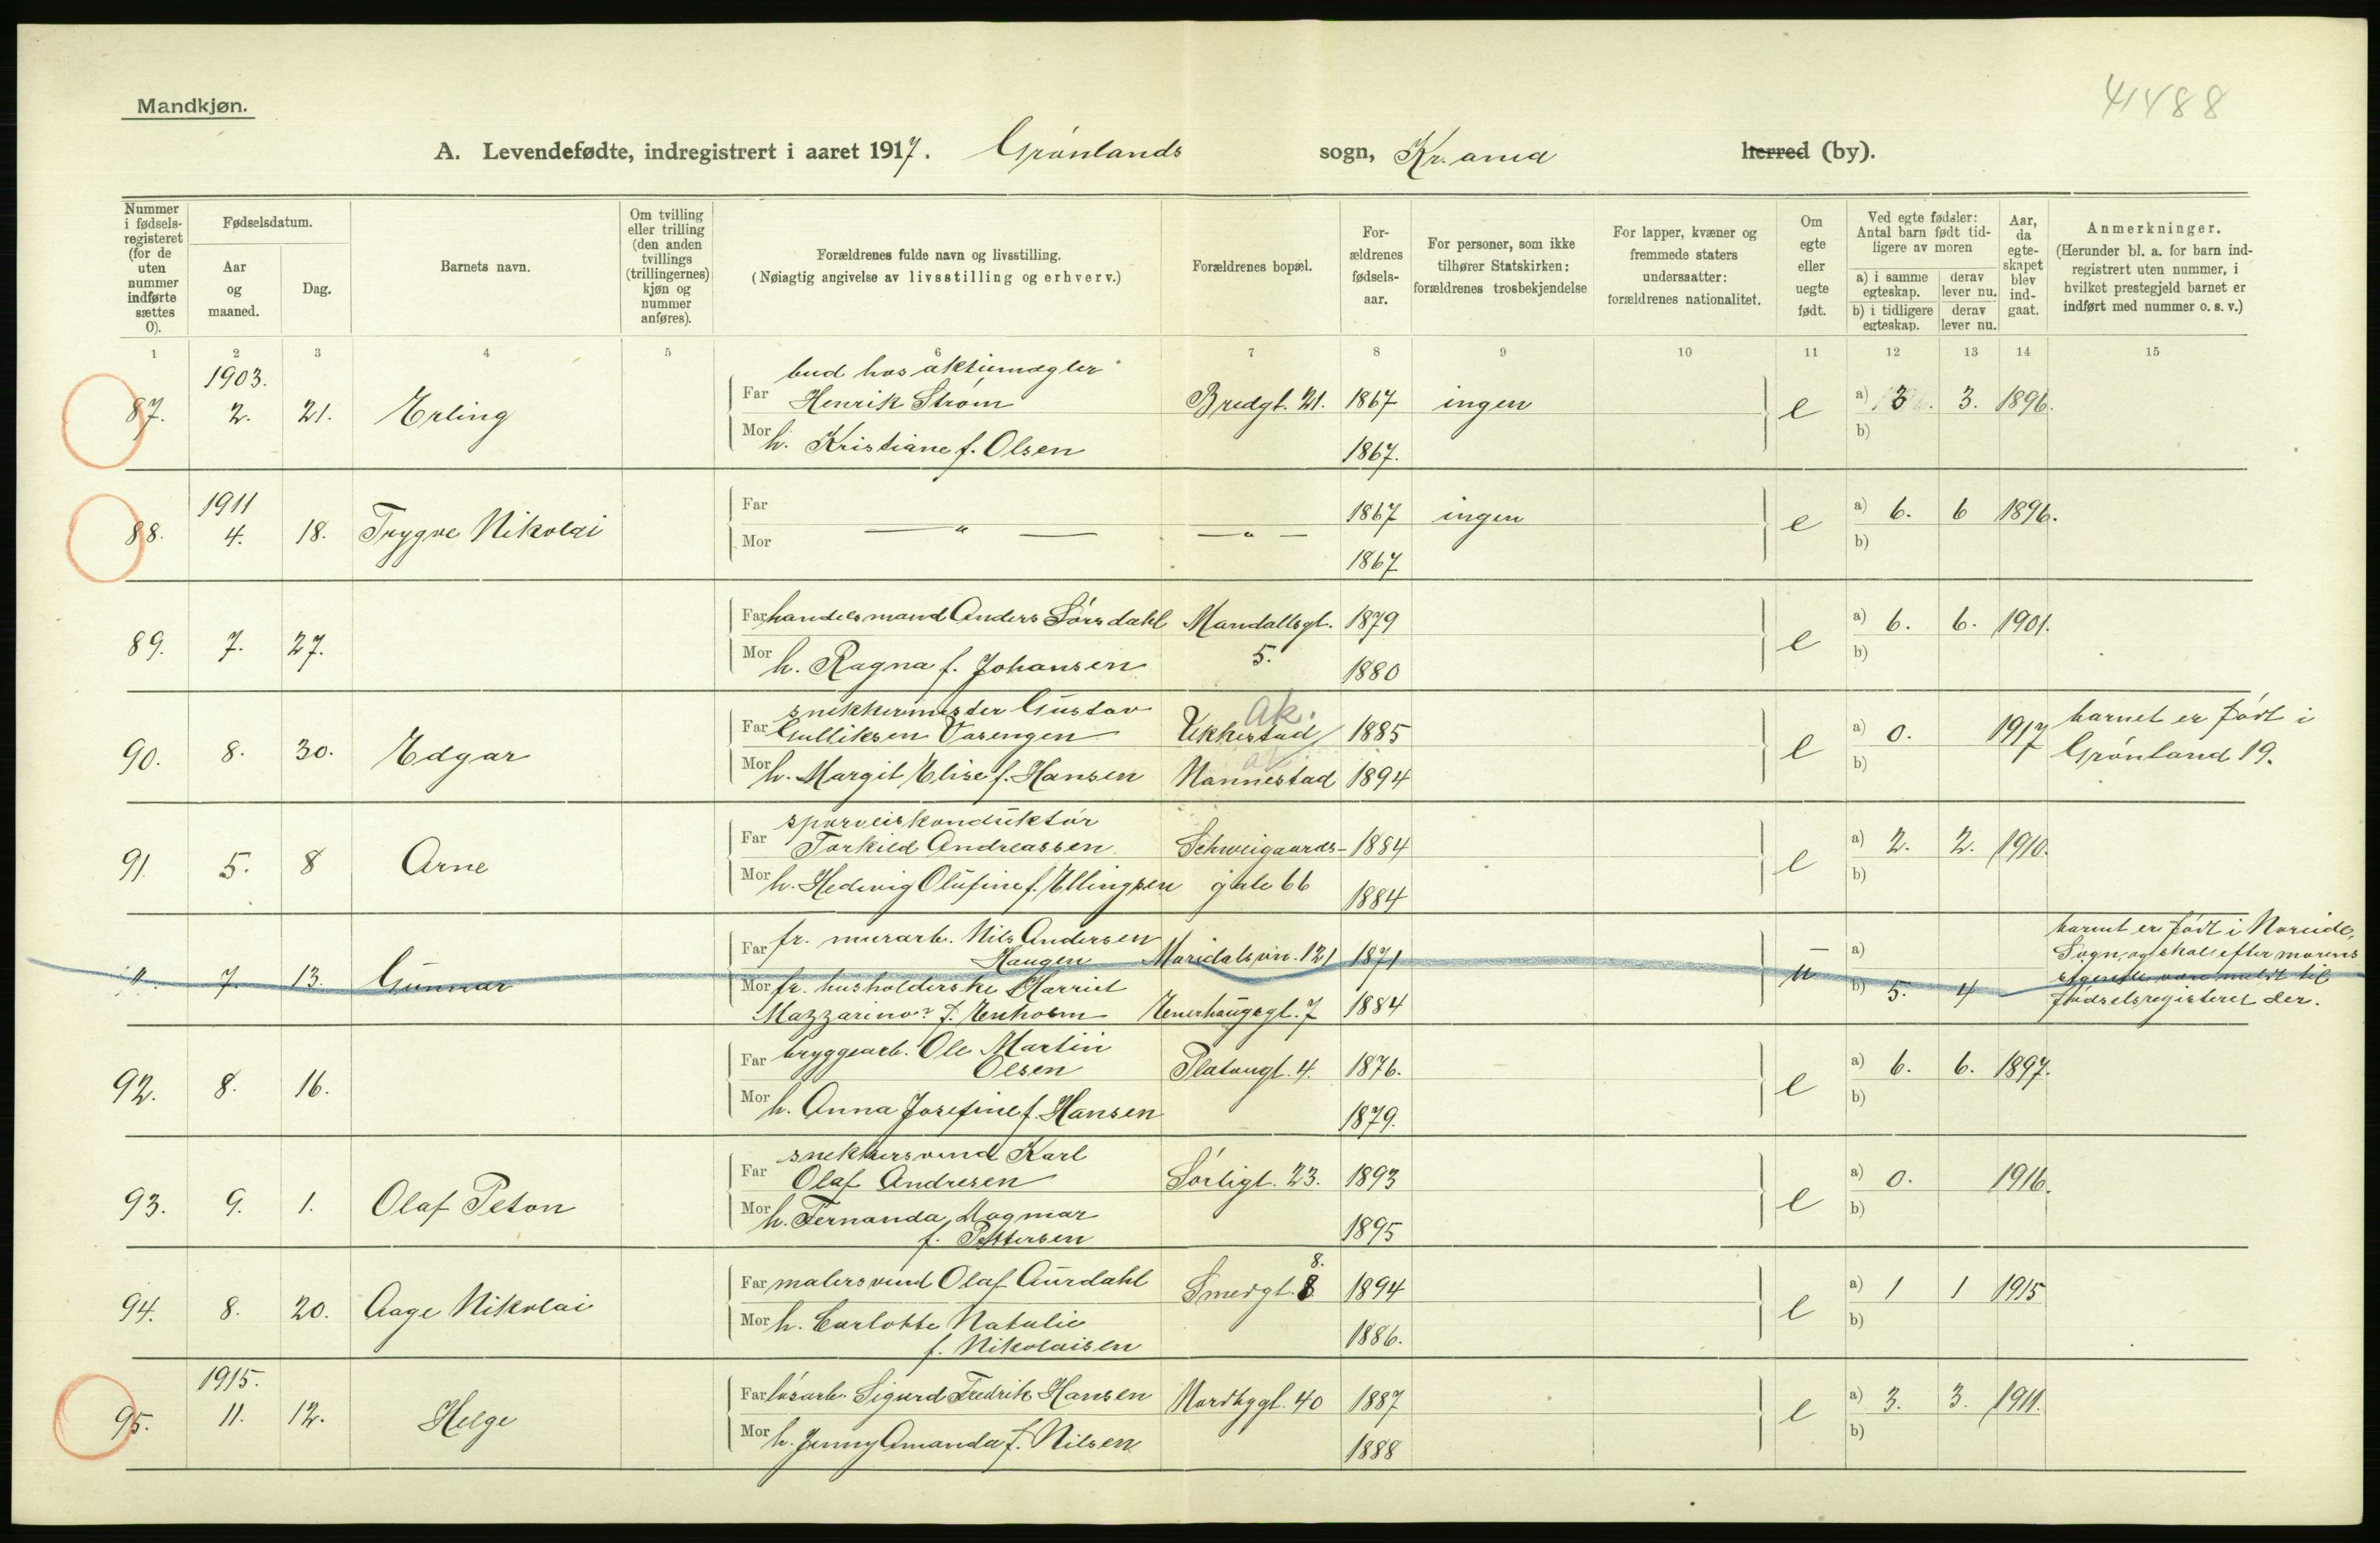 Mandkjøn.
41488
A. Levendefødte, indregistrert i aaret 1917. Grønlands sogn, Kr.ania herred (by).
Nummer i fødselsregisteret (for de uten nummer indførte sættes 0).
Fødselsdatum.
Aar og maaned.
Dag.
Barnets navn.
Om tvilling eller trilling (den anden tvillings (trillingernes) kjøn og nummer anføres).
Forældrenes fulde navn og livsstilling.
(Nøiagtig angivelse av livsstilling og erhverv.)
Forældrenes bopæl.
Forældrenes fødselsaar.
For personer, som ikke tilhører Statskirken: forældrenes trosbekjendelse
For lapper, kvæner og fremmede staters undersaatter: forældrenes nationalitet.
Om egte eller uegte født.
Ved egte fødsler: Antal barn født tidligere av moren
a) i samme egteskap. derav lever nu.
b) i tidligere egteskap. derav lever nu.
Aar, da egteskapet blev indgaat.
Anmerkninger.
(Herunder bl. a. for barn indregistrert uten nummer, i hvilket prestegjeld barnet er indført med nummer o. s. v.)
1 2 3 4 5 6 7 8 9 10 11 12 13 14 15
1903. bud hos aktiemægler
87. 2. 21. Erling Far Henrik Strøm Bredgt. 21. 1867 ingen e a) 3 3. 1896.
Mor h. Kristiane f. Olsen 1867. b)
1911
88. 4. 18. Trygve Nikolai Far — " — — " — 1867 ingen e a) 6. 6 1896.
Mor 1867 b)
89. 7. 27. Far handelsmand Anders Sørsdahl Mandallsgt. 1879 e a) 6. 6. 1901.
Mor h. Ragna f. Johansen 5. 1880 b)
snekkermester Gustav Ak.
90. 8. 30. Edgar Far Gulliksen Vasengen Ukkestad 1885 e a) 0. 1917 barnet er født i
Mor h. Margit Elise f. Hansen Nannestad 1894 b) Grønland 19.
sporveiskonduktør
91. 5. 8 Arne Far Torkild Andreassen Schweigaards- 1884 e a) 2. 2. 1910.
Mor h. Hedevig Olufine f. Ellingsen gate 66 1884 b)
". 7. 13. Gunnar Far fr. murarb. Nils Andersen Haugen Maridalsvn. 121 1871 u a) barnet er født i
Sogn, og skal efter morens
Mor fr. husholderske Harriet 1884 b) 5. 4 være meldt til
Mazzarino? f. Enerhaugsgt. 7 fødselsregisteret der.
92. 8. 16. Far bryggearb. Ole Martin Olsen Platougt. 4. 1876. e a) 6. 6. 1897.
Mor h. Anna Josefine f. Hansen 1879. b)
snekkersvend Karl
93. 9. 1. Olaf Peton Far Olaf Andresen Sørligt. 23. 1893 e a) 0. 1916.
Mor h. Fernanda Dagmar f. Pettersen 1895 b)
94. 8. 20. Aage Nikolai Far malersvend Olaf Aurdahl Smedgt. 8. 1894 e a) 1 1 1915
Mor h. Carlotte Natalie f. Nikolaisen 1886. b)
1915.
95. 11. 12. Helge Far løsarb. Sigurd Fredrik Hansen Nordbygt. 40 1887 e a) 3. 3. 1911.
Mor h. Jenny Amanda f. Nilsen 1888 b)